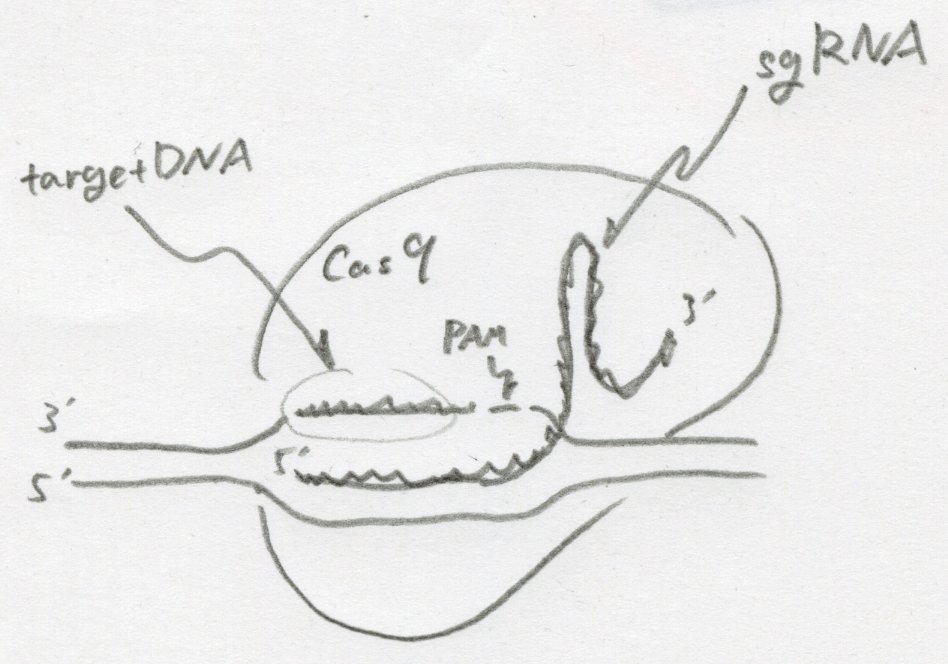 sgRNA
targetDNA
Cas9
3′
PAM
3′
5′
5′